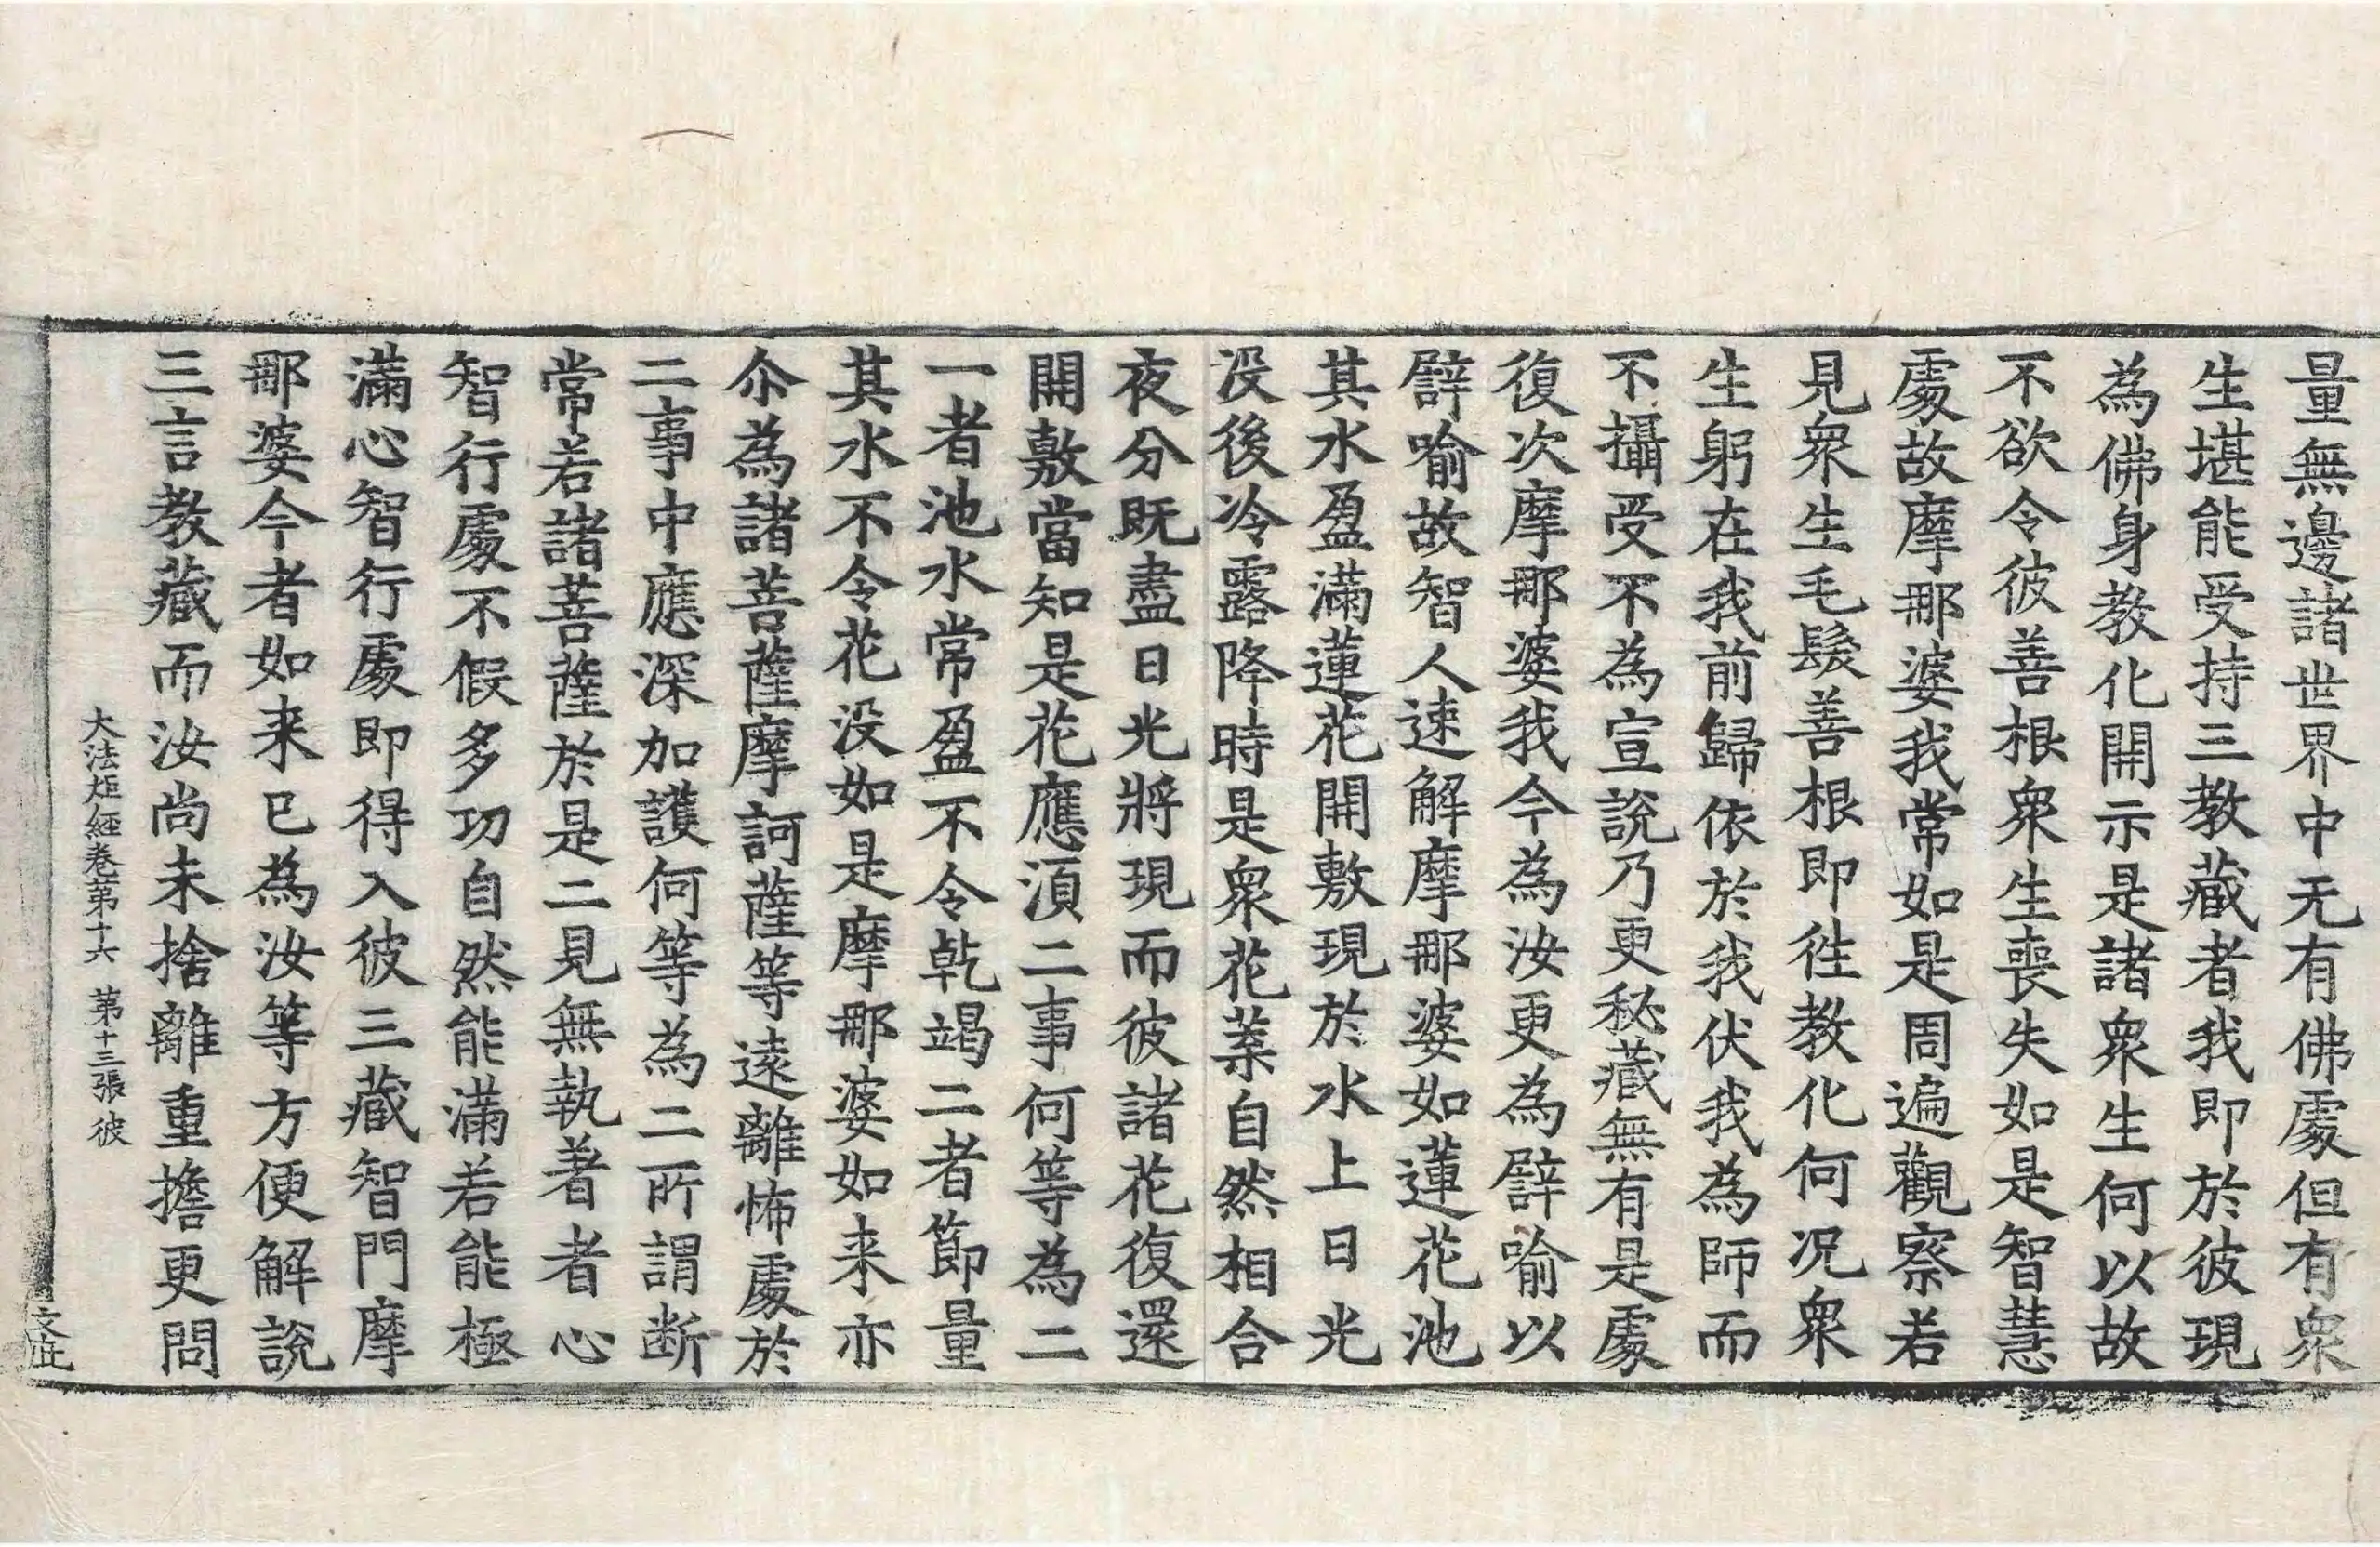 量無邊諸世界中无有佛處但有衆
生堪能受持三教藏者我即於彼現
為佛身教化開示是諸衆生何以故
不欲令彼善根衆生喪失如是智慧
處故摩那婆我常如是周遍觀察若
見衆生毛髮善根即往教化何况衆
生躬在我前歸依於我伏我為師而
不攝受不為宣說乃更秘藏無有是處
復次摩那婆我今為汝更為譬喻以
譬喻故智人速解摩那婆如蓮花池
其水盈滿蓮花開敷現於水上日光
没後冷露降時是衆花葉自然相合
夜分既盡日光將現而彼諸花復還
開敷當知是花應須二事何等為二
一者池水常盈不令乾竭二者節量
其水不令花没如是摩那婆如来亦
尒為諸菩薩摩訶薩等遠離怖處於
二事中應深加護何等為二所謂断
常若諸菩薩於是二見無執著者心
智行處不假多功自然能滿若能極
滿心智行處即得入彼三藏智門摩
那婆今者如来已為汝等方便解說
三言教藏而汝尚未捨離重擔更問
大法炬經卷第十六 第十三張 彼